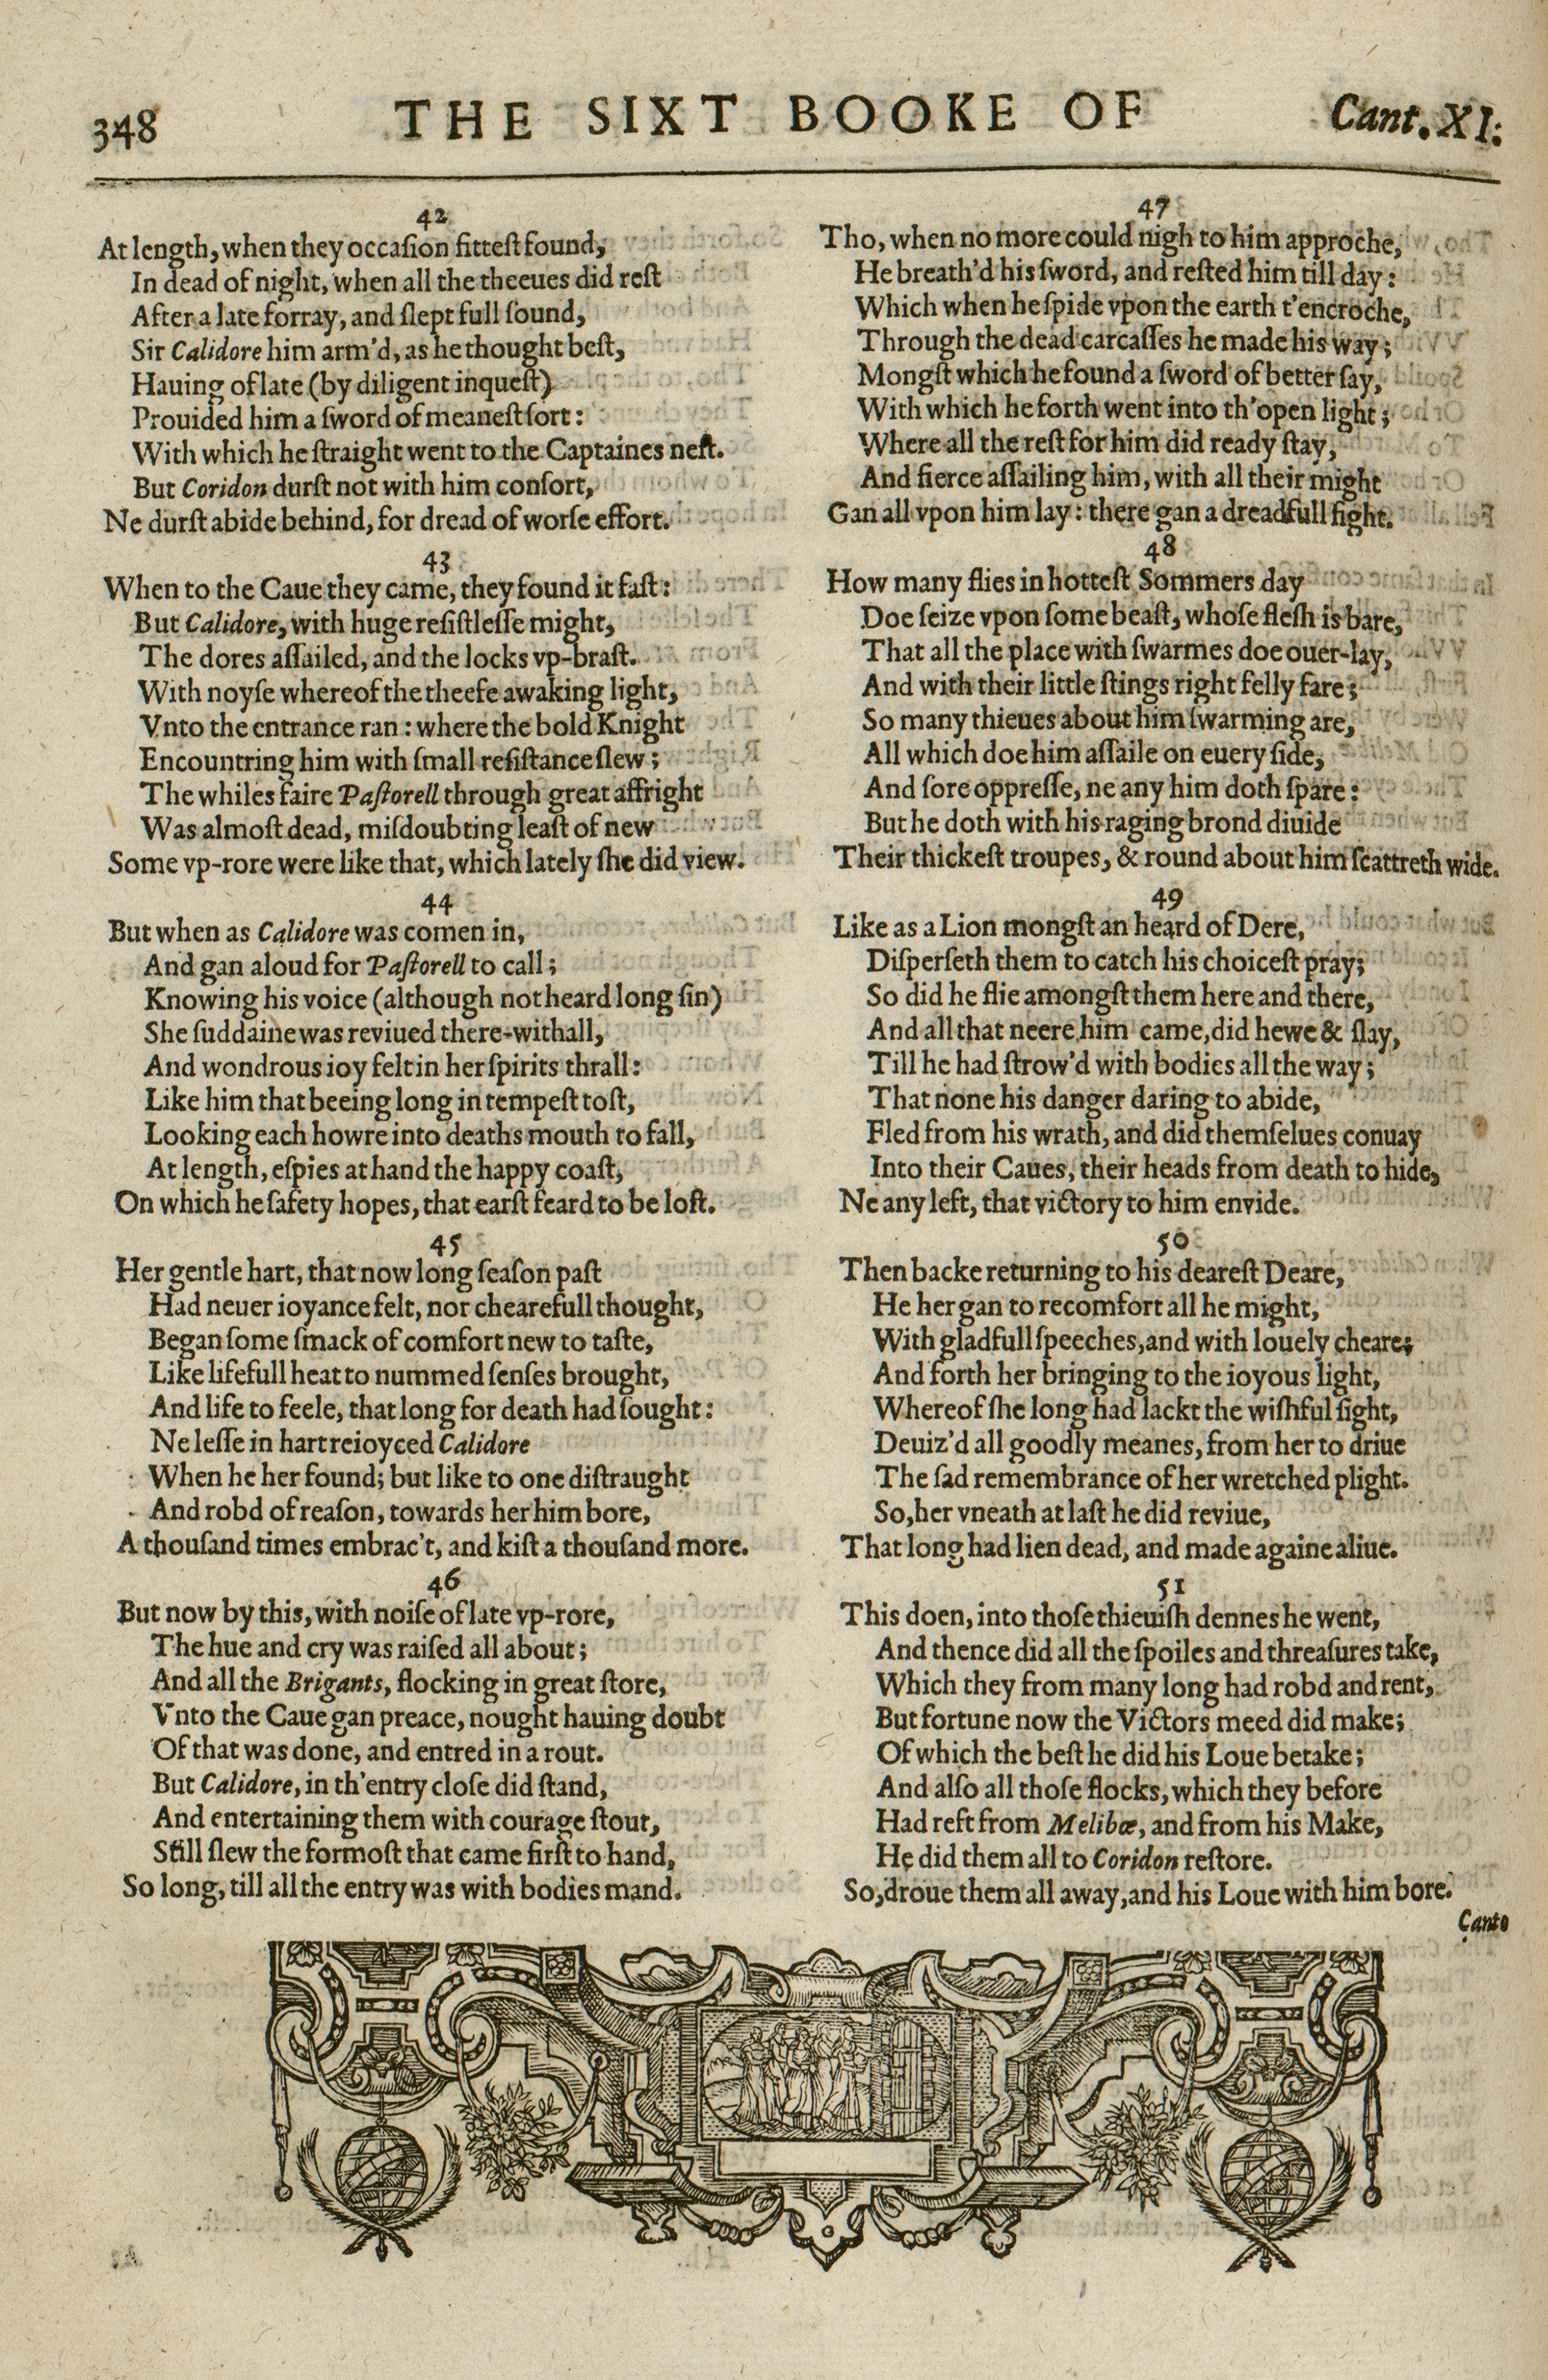 348
THE SIXT BOOKE OF
Cant. XI:
42
At length, when they occaſion fitteſt found,
In dead of night, when all the theeues did reſt
After a late forray, and ſlept full ſound,
Sir Calidore him arm'd, as he thought beſt,
Hauing of late (by diligent inqueſt)
Prouided him a ſword of meaneſt ſort:
With which he ſtraight went to the Captaines neſt.
But Coridon durſt not with him conſort,
Ne durſt abide behind, for dread of worſe effort.
43
When to the Caue they came, they found it faſt:
But Calidore, with huge reſiſtleſſe might,
The dores aſſailed, and the locks vp-braſt.
With noyſe whereof the theefe awaking light,
Vnto the entrance ran: where the bold Knight
Encountring him with ſmall reſiſtance ſlew;
The whiles faire Paſtorell through great affright
Was almoſt dead, miſdoubting leaſt of new
Some vp-rore were like that, which lately ſhe did view.
44
But when as Calidore was comen in,
And gan aloud for Paſtorell to call;
Knowing his voice (although not heard long ſin)
She ſuddaine was reviued there-withall,
And wondrous ioy felt in her ſpirits thrall:
Like him that beeing long in tempeſt toſt,
Looking each howre into deaths mouth to fall,
At length, eſpies at hand the happy coaſt,
On which he ſafety hopes, that earſt feard to be loſt.
45
Her gentle hart, that now long ſeaſon paſt
Had neuer ioyance felt, nor chearefull thought,
Began ſome ſmack of comfort new to taſte,
Like lifefull heat to nummed ſenſes brought,
And life to feele, that long for death had ſought:
Ne leſſe in hart reioyced Calidore
When he her found; but like to one diſtraught
And robd of reaſon, towards her him bore,
A thouſand times embrac't, and kiſt a thouſand more.
46
But now by this, with noiſe of late vp-rore,
The hue and cry was raiſed all about;
And all the Brigants, flocking in great ſtore,
Vnto the Caue gan preace, nought hauing doubt
Of that was done, and entred in a rout.
But Calidore, in th'entry cloſe did ſtand,
And entertaining them with courage ſtout,
Still ſlew the formoſt that came firſt to hand,
So long, till all the entry was with bodies mand.
47
Tho, when no more could nigh to him approche,
He breath'd his ſword, and reſted him till day:
Which when he ſpide vpon the earth t'encroche,
Through the dead carcaſſes he made his way;
Mongſt which he found a ſword of better ſay,
With which he forth went into th'open light;
Where all the reſt for him did ready ſtay,
And fierce aſſailing him, with all their might
Gan all vpon him lay: there gan a dreadfull fight.
48
How many flies in hotteſt Sommers day
Doe ſeize vpon ſome beaſt, whoſe fleſh is bare,
That all the place with ſwarmes doe ouer-lay,
And with their little ſtings right felly fare;
So many thieues about him ſwarming are,
All which doe him aſſaile on euery ſide,
And ſore oppreſſe, ne any him doth ſpare:
But he doth with his raging brond diuide
Their thickeſt troupes, & round about him ſcattreth wide.
49
Like as a Lion mongſt an heard of Dere,
Diſperſeth them to catch his choiceſt pray;
So did he flie amongſt them here and there,
And all that neere him came, did hewe & ſlay,
Till he had ſtrow'd with bodies all the way;
That none his danger daring to abide,
Fled from his wrath, and did themſelues conuay
Into their Caues, their heads from death to hide,
Ne any left, that victory to him envide.
50
Then backe returning to his deareſt Deare,
He her gan to recomfort all he might,
With gladfull ſpeeches, and with louely cheare;
And forth her bringing to the ioyous light,
Whereof ſhe long had lackt the wiſhful ſight,
Deuiz'd all goodly meanes, from her to driue
The ſad remembrance of her wretched plight.
So, her vneath at laſt he did reviue,
That long had lien dead, and made againe aliue.
51
This doen, into thoſe thieuiſh dennes he went,
And thence did all the ſpoiles and threaſures take,
Which they from many long had robd and rent,
But fortune now the Victors meed did make;
Of which the beſt he did his Loue betake;
And alſo all thoſe flocks, which they before
Had reft from Melibœ, and from his Make,
He did them all to Coridon reſtore.
So, droue them all away, and his Loue with him bore.
Canto